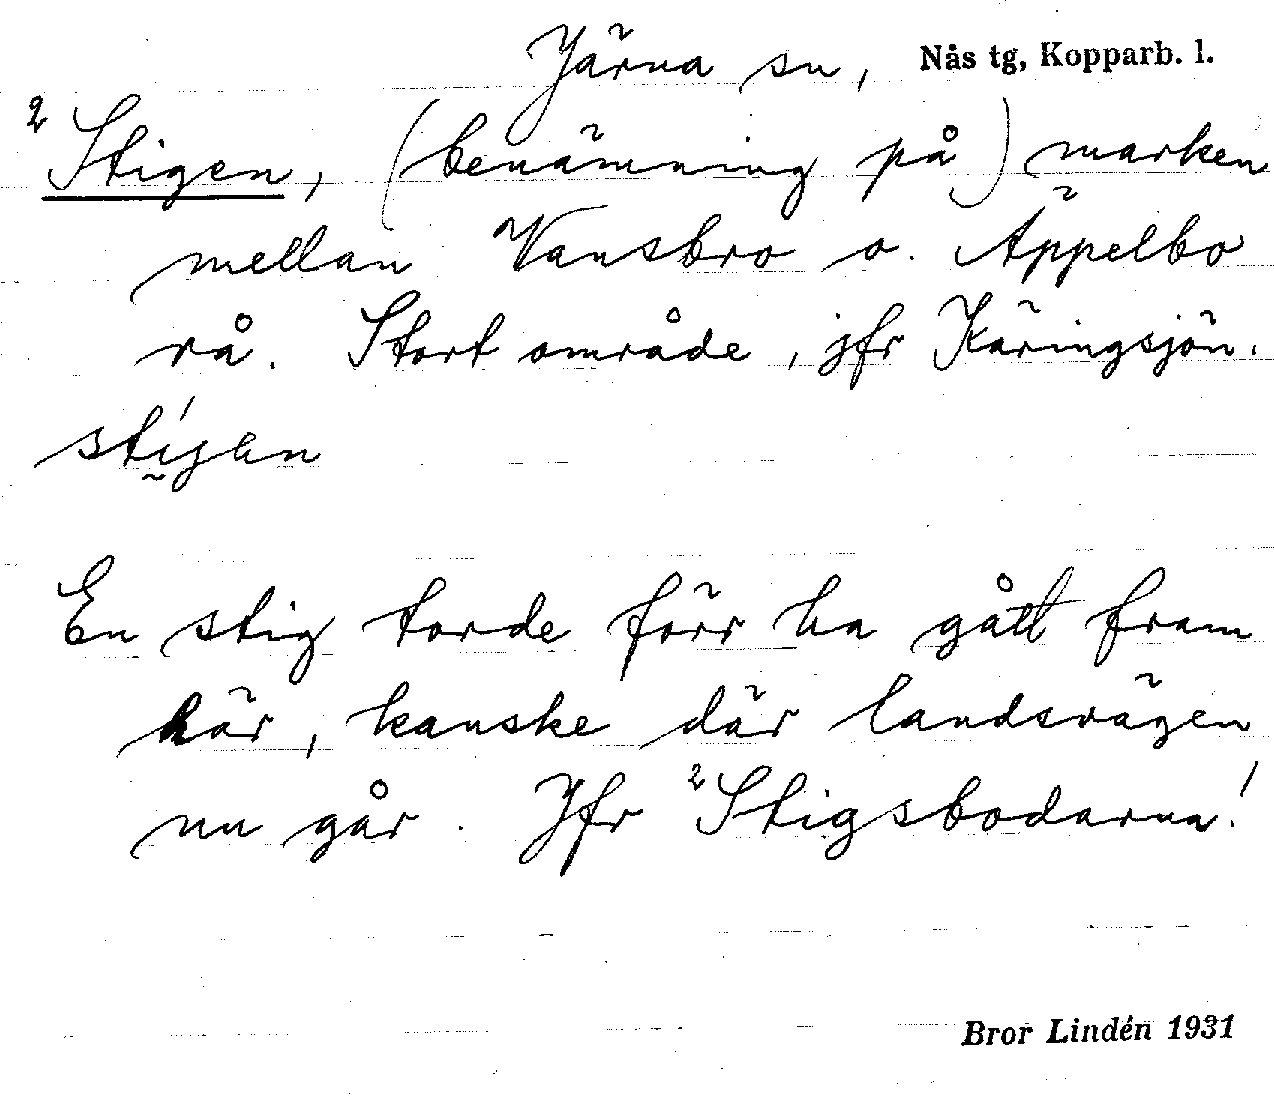 Järna sn, Nås tg, Kopparb. l.
2 Stigen, (benämning på) marken
mellan Vansbro o. Äppelbo
rå. Stort område, jfr Käringsjön.
stígen
En stig torde förr ha gått fram
här, kanske där landsvägen
nu går. Jfr 2Stigsbodarna!
Bror Lindén 1931